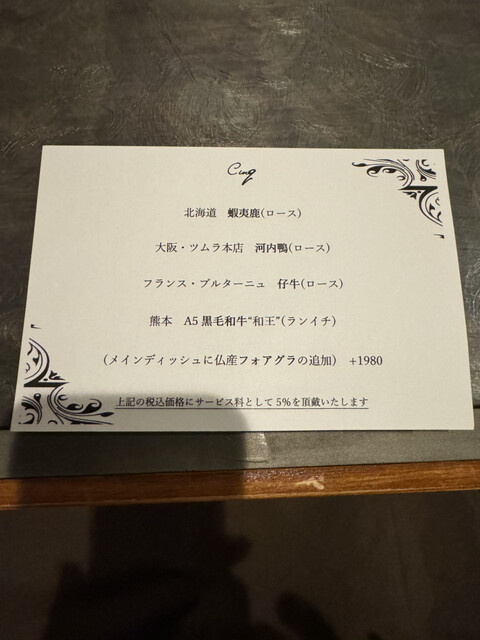 Cinq
北海道 蝦夷鹿(ロース)
大阪・ツムラ本店 河内鴨(ロース)
フランス・ブルターニュ 仔牛(ロース)
熊本 A5 黒毛和牛“和王”(ランイチ)
(メインディッシュに仏産フォアグラの追加) +1980
上記の税込価格にサービス料として 5%を頂戴いたします